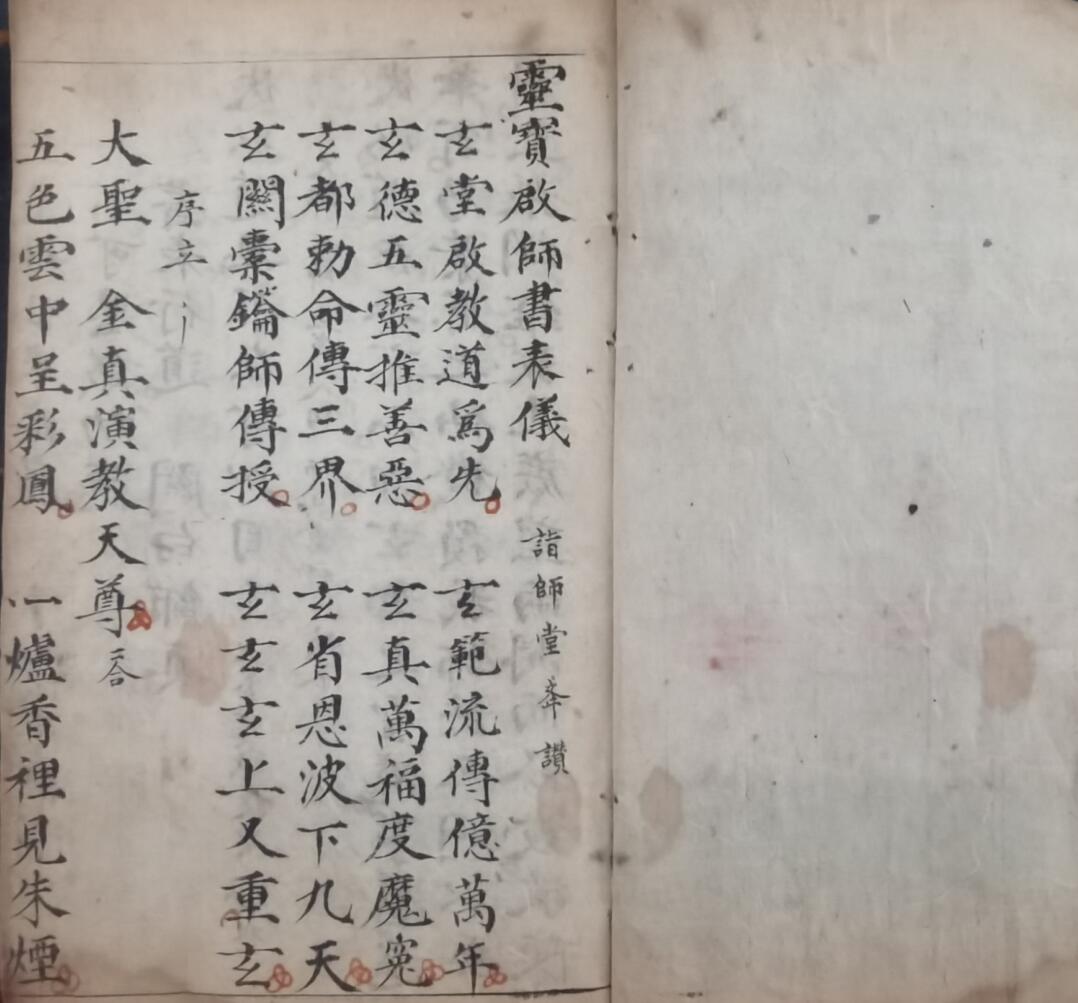 靈寳啟師書表儀 詣師堂奉讃
玄堂啟教道爲先 玄範流傳億萬年
玄德五靈推善惡 玄真萬福度魔寃
玄都勅命傳三界 玄省恩波下九天
玄關橐鑰師傳授 玄玄玄上又重玄
序立
大聖 金真演教天尊 三合
五色雲中呈彩鳳 一爐香裡見朱煙